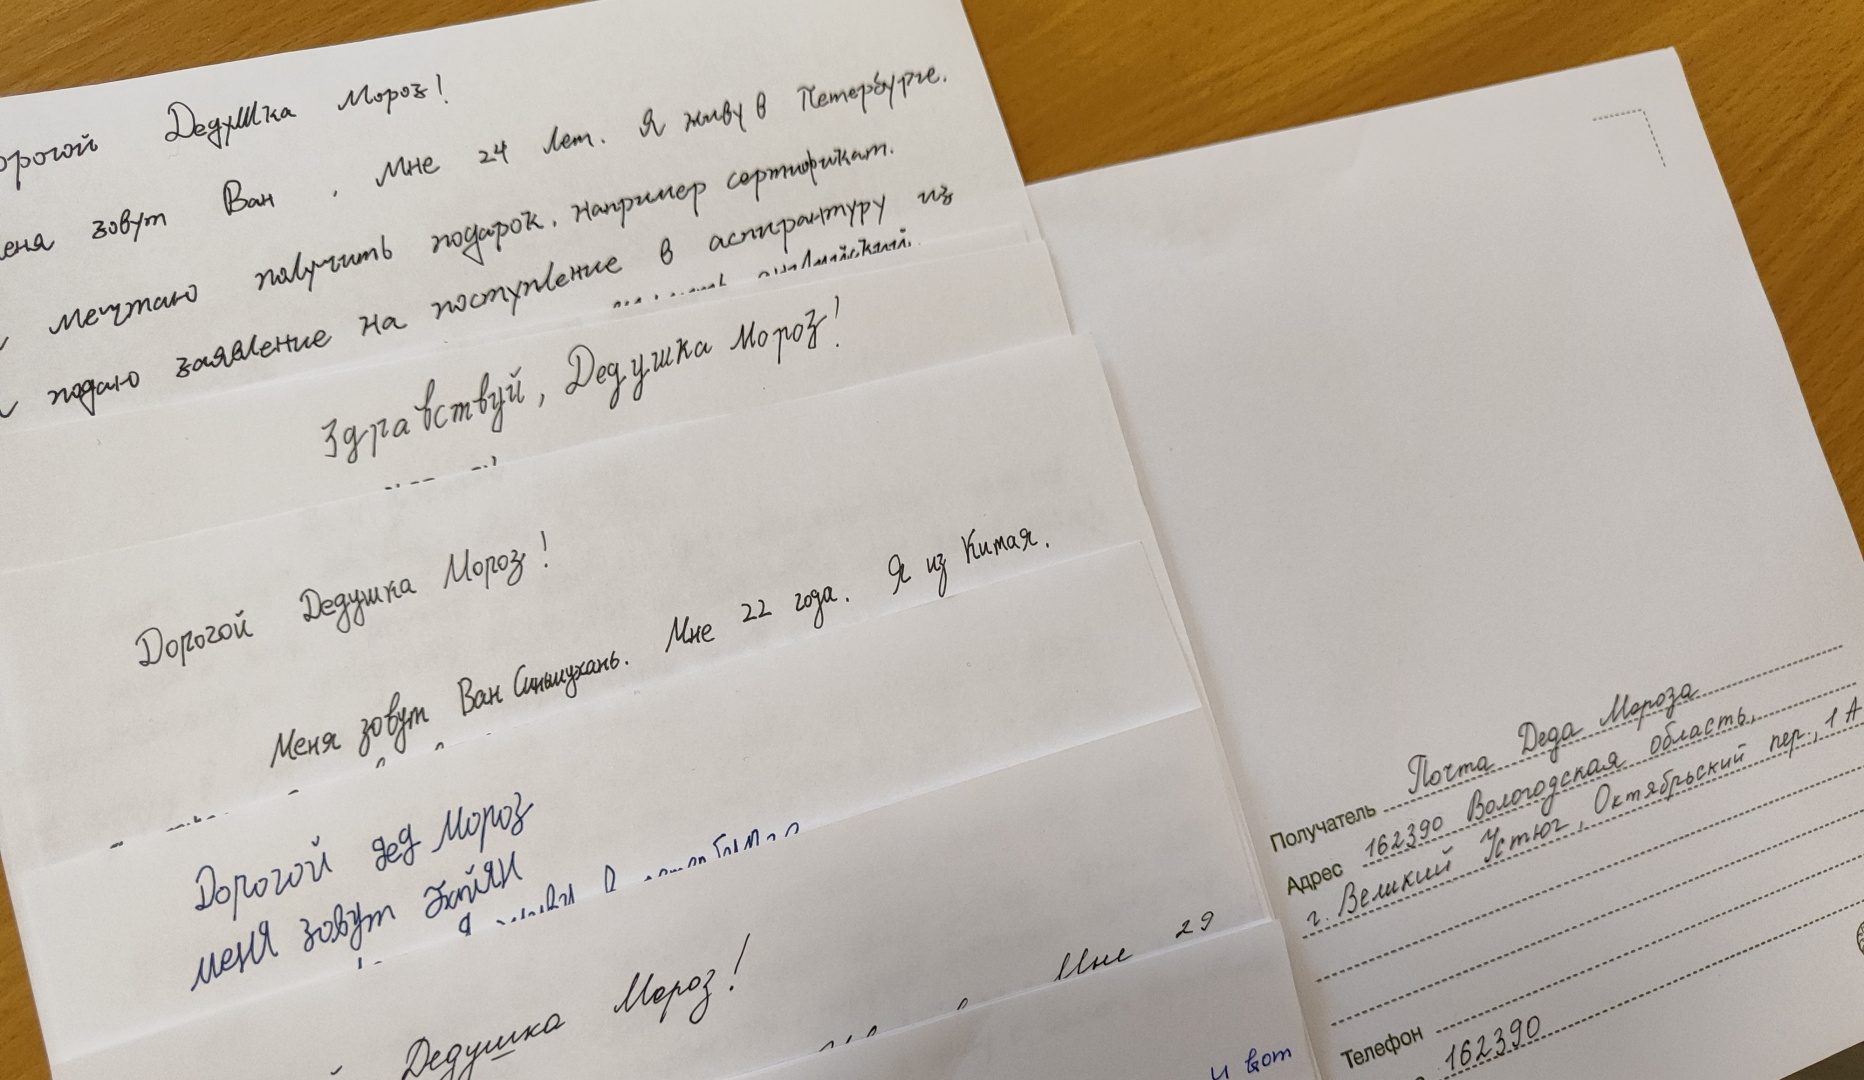 орогой ДедуШка Мороз!
еня зовут Ван , Мне 24 лет. Я живу в Петербурге.
мечтаю получить подарок. например сертификат.
подаю заявление на поступление в аспирантуру из
английский.
Здравствуй, Дедушка Мороз!
Дорогой Дедушка Мороз!
Меня зовут Ван Синьшухань. Мне 22 года. Я из Китая.
Дорогой дед Мороз
меня зовут
Я живу в
Дедушка Мороз!
Мне 29
и вот
Получатель Почта Деда Мороза
Адрес 162390 Вологодская область,
г. Великий Устюг, Октябрьский пер., 1А
Телефон
162390